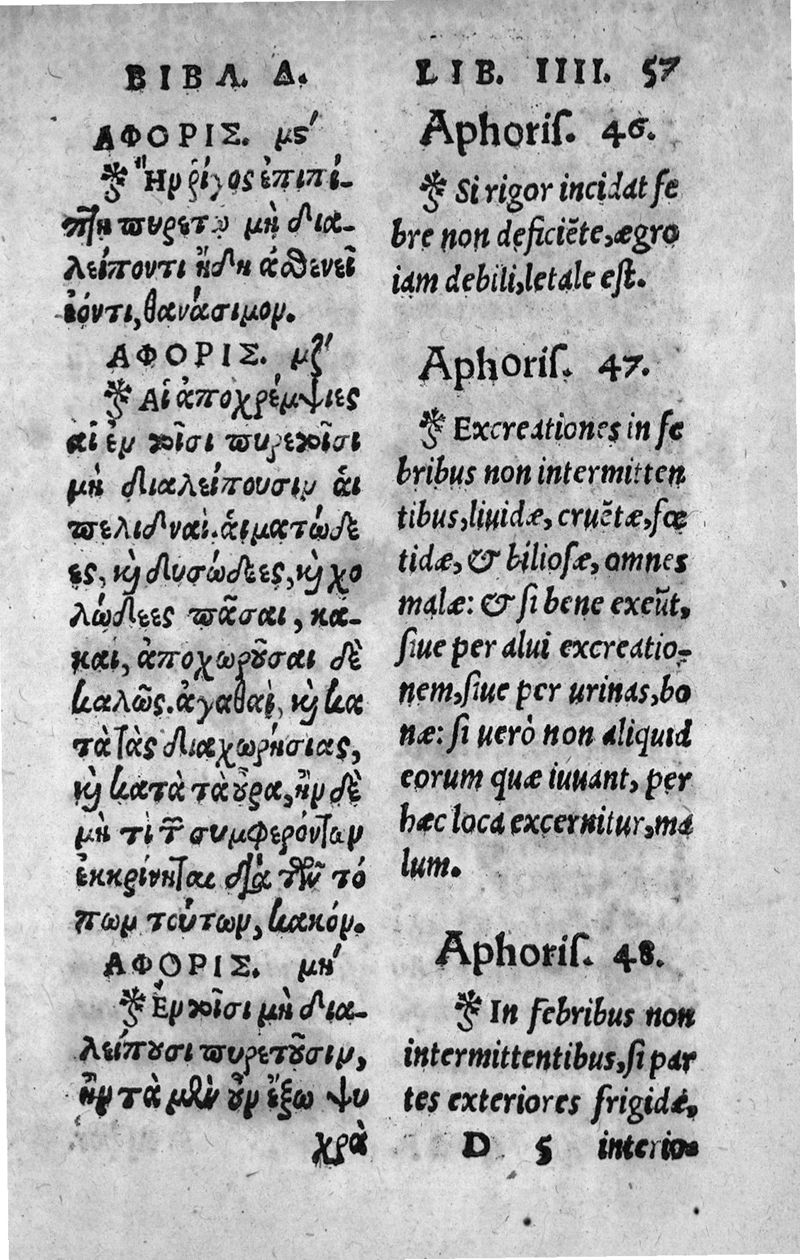 ΒΙΒΛ. Δ.
ΑΦΟΡΙΣ. μϛʹ
Ἢν ῥίγος ἐπιπί-
πτῃ πυρετῷ μὴ δια-
λείποντι ἤδη ἀσθενεῖ
ἐόντι, θανάσιμον.
ΑΦΟΡΙΣ. μζʹ
Αἱ ἀποχρέμψιες
αἱ ἐν τοῖσι πυρετοῖσι
μὴ διαλείπουσιν αἱ
πελιδναὶ. αἱματώδε
ες, καὶ δυσώδεες, καὶ χο
λώδεες πᾶσαι, κα-
καὶ, ἀποχωροῦσαι δὲ
καλῶς. ἀγαθαὶ, καὶ κα
τὰ τὰς διαχωρήσιας,
καὶ κατὰ τὰ οὖρα, ἢν δὲ
μὴ τὶ τῶν συμφερόντων
ἐκκρίνηται διὰ τῶν τό
πων τούτων, κακόν.
ΑΦΟΡΙΣ. μηʹ
Ἐν τοῖσι μὴ δια-
λείπουσι πυρετοῦσιν,
ἢν τὰ μὲν οὖν ἔξω ψυ
χρὰ
LIB. IIII. 57
Aphoris. 46.
Si rigor incidat fe
bre non deficiẽte, ægro
iam debili, letale est.
Aphoris. 47.
Excreationes in fe
bribus non intermitten
tibus, liuidæ, cruẽtæ, fœ
tidæ, & biliosæ, omnes
malæ: & si bene exeũt,
siue per alui excreatio-
nem, siue per urinas, bo
næ: si uerò non aliquid
eorum quæ iuuant, per
hæc loca excernitur, ma
lum.
Aphoris. 48.
In febribus non
intermittentibus, si par
tes exteriores frigidæ,
D 5 interio-